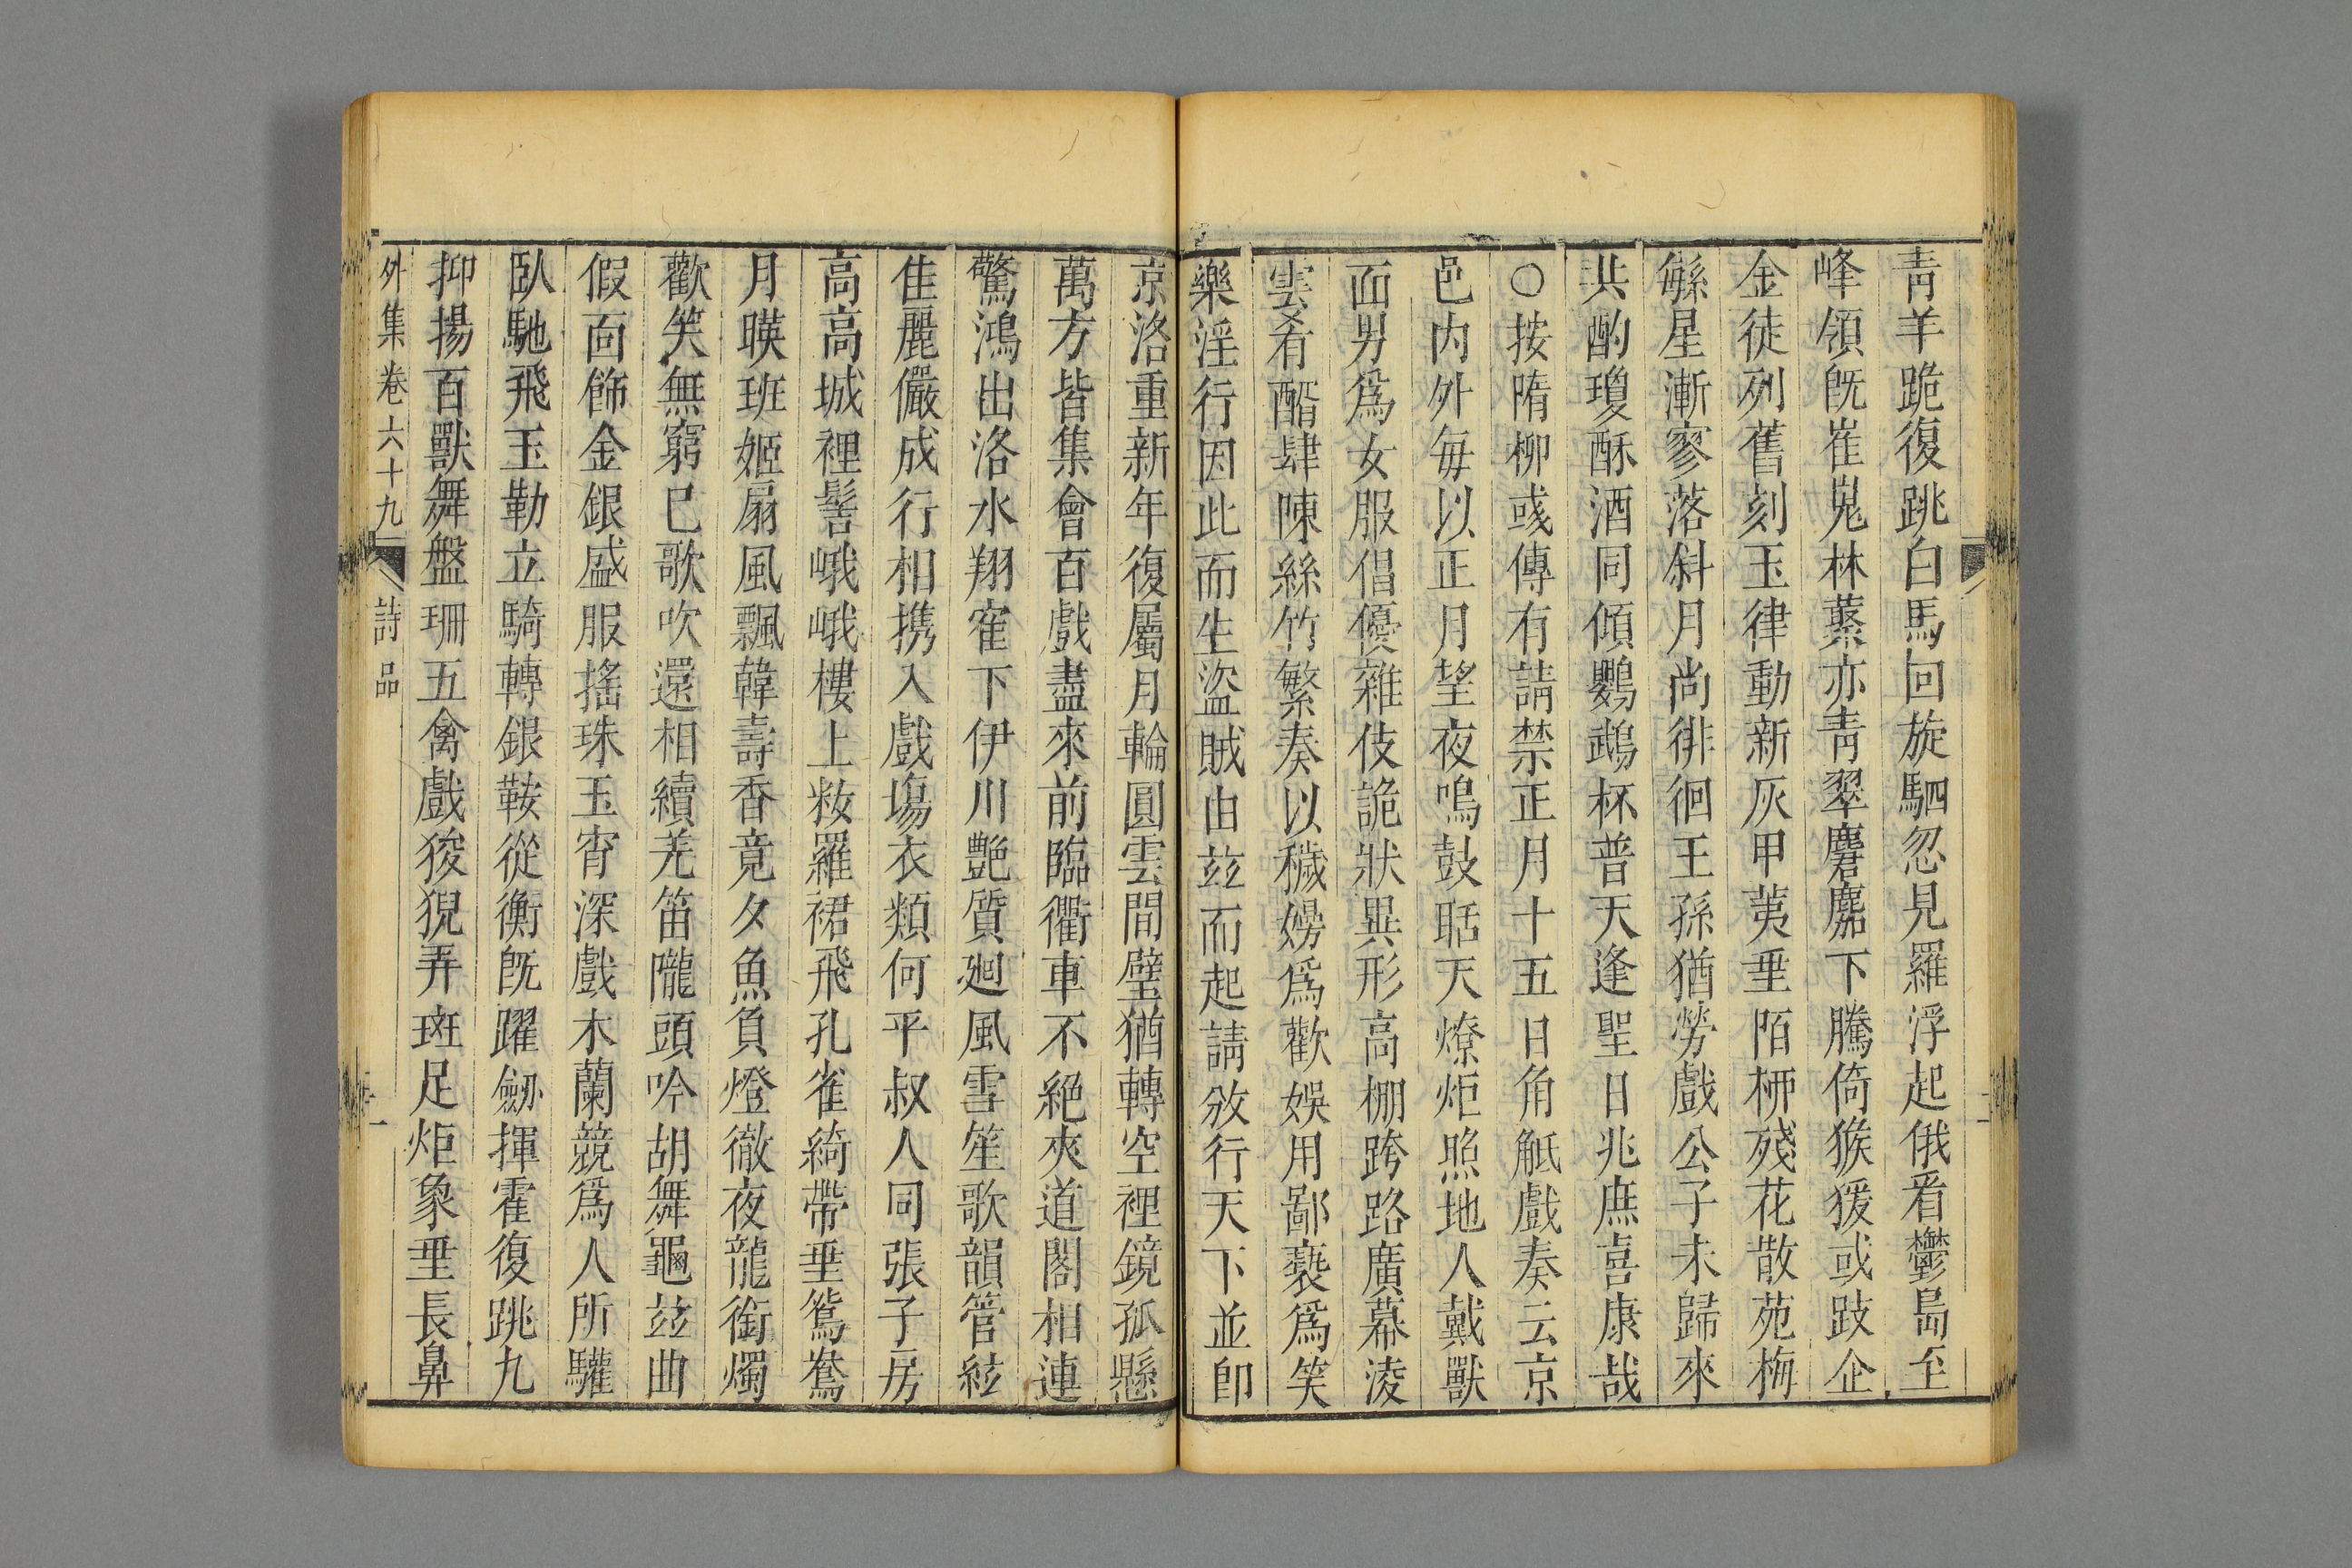 青羊跪復跳白馬回旋駟忽見羅浮起俄看鬱島至
峰嶺旣崔嵬林藂亦青翠麏麚下騰倚猴猨或跂企
金徒列舊刻玉律動新灰甲荑垂陌栁殘花散苑梅
繇星漸寥落斜月尚徘徊王孫猶勞戲公子未歸來
共酌瓊酥酒同傾鸚鵡杯普天逢聖日兆庶喜康哉
○按隋柳彧傳有請禁正月十五日角觝戲奏云京
邑内外每以正月望夜嗚鼓聒天燎炬照地人戴獸
面男爲女服倡優雜伎詭狀異形高棚跨路廣幕淩
雲肴醑肆陳絲竹繁奏以穢嫚爲歡娛用鄙褻爲笑
樂淫行因此而生盜賊由茲而起請敓行天下並卽
京洛重新年復屬月輪圓雲間璧猶轉空裡鏡孤懸
萬方皆集會百戲盡來前臨衢車不絕夾道閣相連
驚鴻出洛水翔寉下伊川艷質廻風雪笙歌韻管絃
佳麗儼成行相携入戲塲衣類何平叔人同張子房
高高城裡髻峨峨樓上粧羅裙飛孔雀綺帶垂鴛鴦
月暎班姬扇風飄韓壽香竟夕魚負燈徹夜龍銜燭
歡笑無窮巳歌吹還相續羌笛隴頭吟胡舞龜茲曲
假面飾金銀盛服搖珠玉宵深戲未闌競爲人所驩
臥馳飛玉勒立騎轉銀鞍從衡旣躍劒揮霍復跳丸
抑揚百獸舞盤珊五禽戲狻猊弄斑足炬象垂長鼻
外集卷六十九 詩品 二